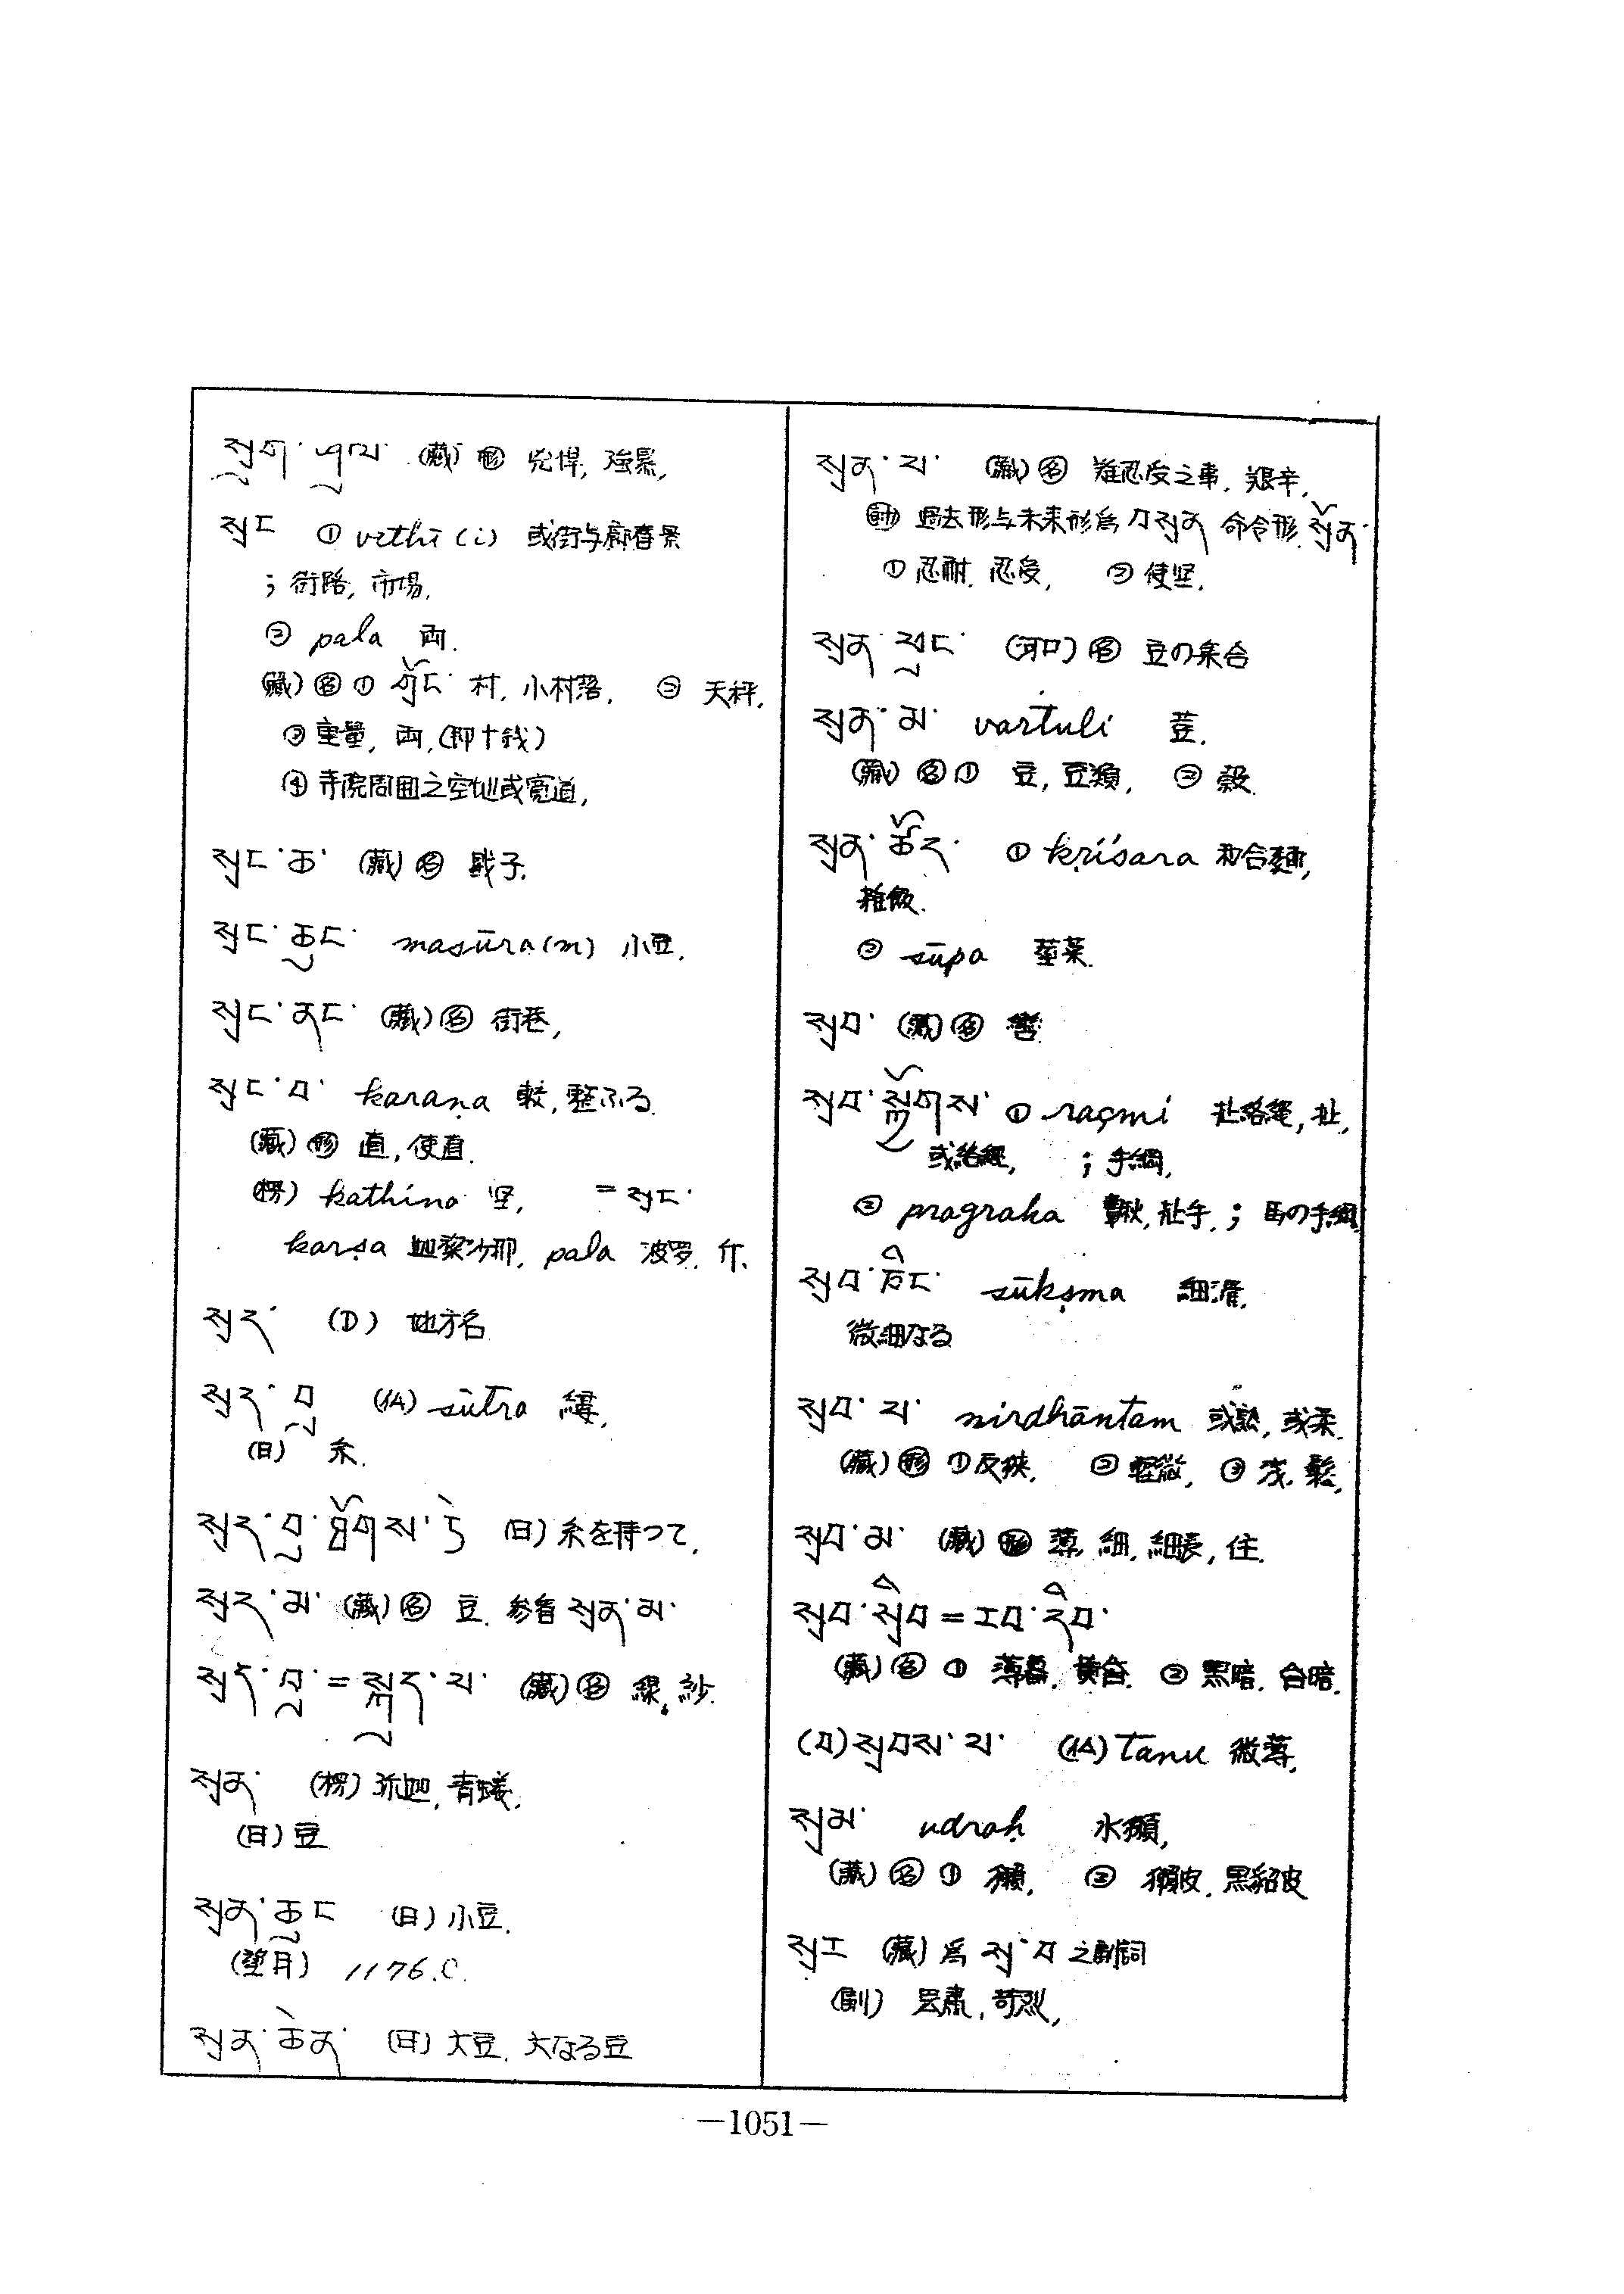 (藏) 形 兇悍, 強暴,
སྲང ① vīthī (i) 或街与廊
; 街路, 市場,
② pala 両.
(藏) 名 ① གྲོང་ 村, 小村落, ② 天秤,
③ 重量, 両, (即十銭)
④ 寺院周囲之空地或寛道,
སྲང་ཆ་ (藏) 名 戥子.
སྲང་ཆུང་ masūra (m) 小豆.
སྲང་ནང་ (藏) 名 街巷,
སྲང་བ་ karaṇa 整ふる.
(藏) 形 直, 使直.
(楞) kathina 坚, = སྲང་
karṣa pala 波罗. 斤.
སྲད་ (D) 地方名
སྲད་བུ (仏) sūtra 縷,
(日) 糸.
སྲད་བུ་ཐོགས་ཏེ (日) 糸を持つて.
སྲད་མ་ (藏) 名 豆. 参看 སྲན་མ་
སྲད་བུ་ = སྐུད་པ་ (藏) 名 線, 紗.
སྲན་ (楞) 青
(日) 豆
སྲན་ཆུང (日) 小豆.
(望月) 1176.C.
སྲན་ཆེན་ (日) 大豆. 大なる豆
སྲན་པ་ (藏) 名 難忍受之事, 艱辛,
動 過去形与未来形為 བསྲན 命令形. སྲོན་
① 忍耐. 忍受, ② 使坚.
སྲན་ (河口) 名 豆の集合
སྲན་མ་ vartuli 荳.
(藏) 名 ① 豆, 豆類, ② 穀.
སྲན་ཚོད་ ① kṛiśara 和合麺,
雑飯.
② sūpa 菜.
སྲབ་ (藏) 名 轡
སྲབ་སྐྱོགས་ ① raçmi
; 手綱,
② pragraha ; 馬の手綱
སྲབ་ཞིང་ sūkṣma 細滑,
微細なる
སྲབ་པ་ nirdhāntam 或熟, 或柔.
(藏) 形 ① ② 軽微, ③
སྲབ་མ་ (藏) 形 薄, 細, 細長,
སྲབ་སྲིབ = རབ་རིབ་
(藏) 名 ① 薄暮, 黄昏. ② 黒暗.
(བ) སྲབས་པ་ (仏) tanu 微薄,
སྲམ་ udraḥ 水獺,
(藏) 名 ① 獺, ② 獺皮. 黒貂皮
(藏) 為 之副詞
(副) 苛烈,
—1051—